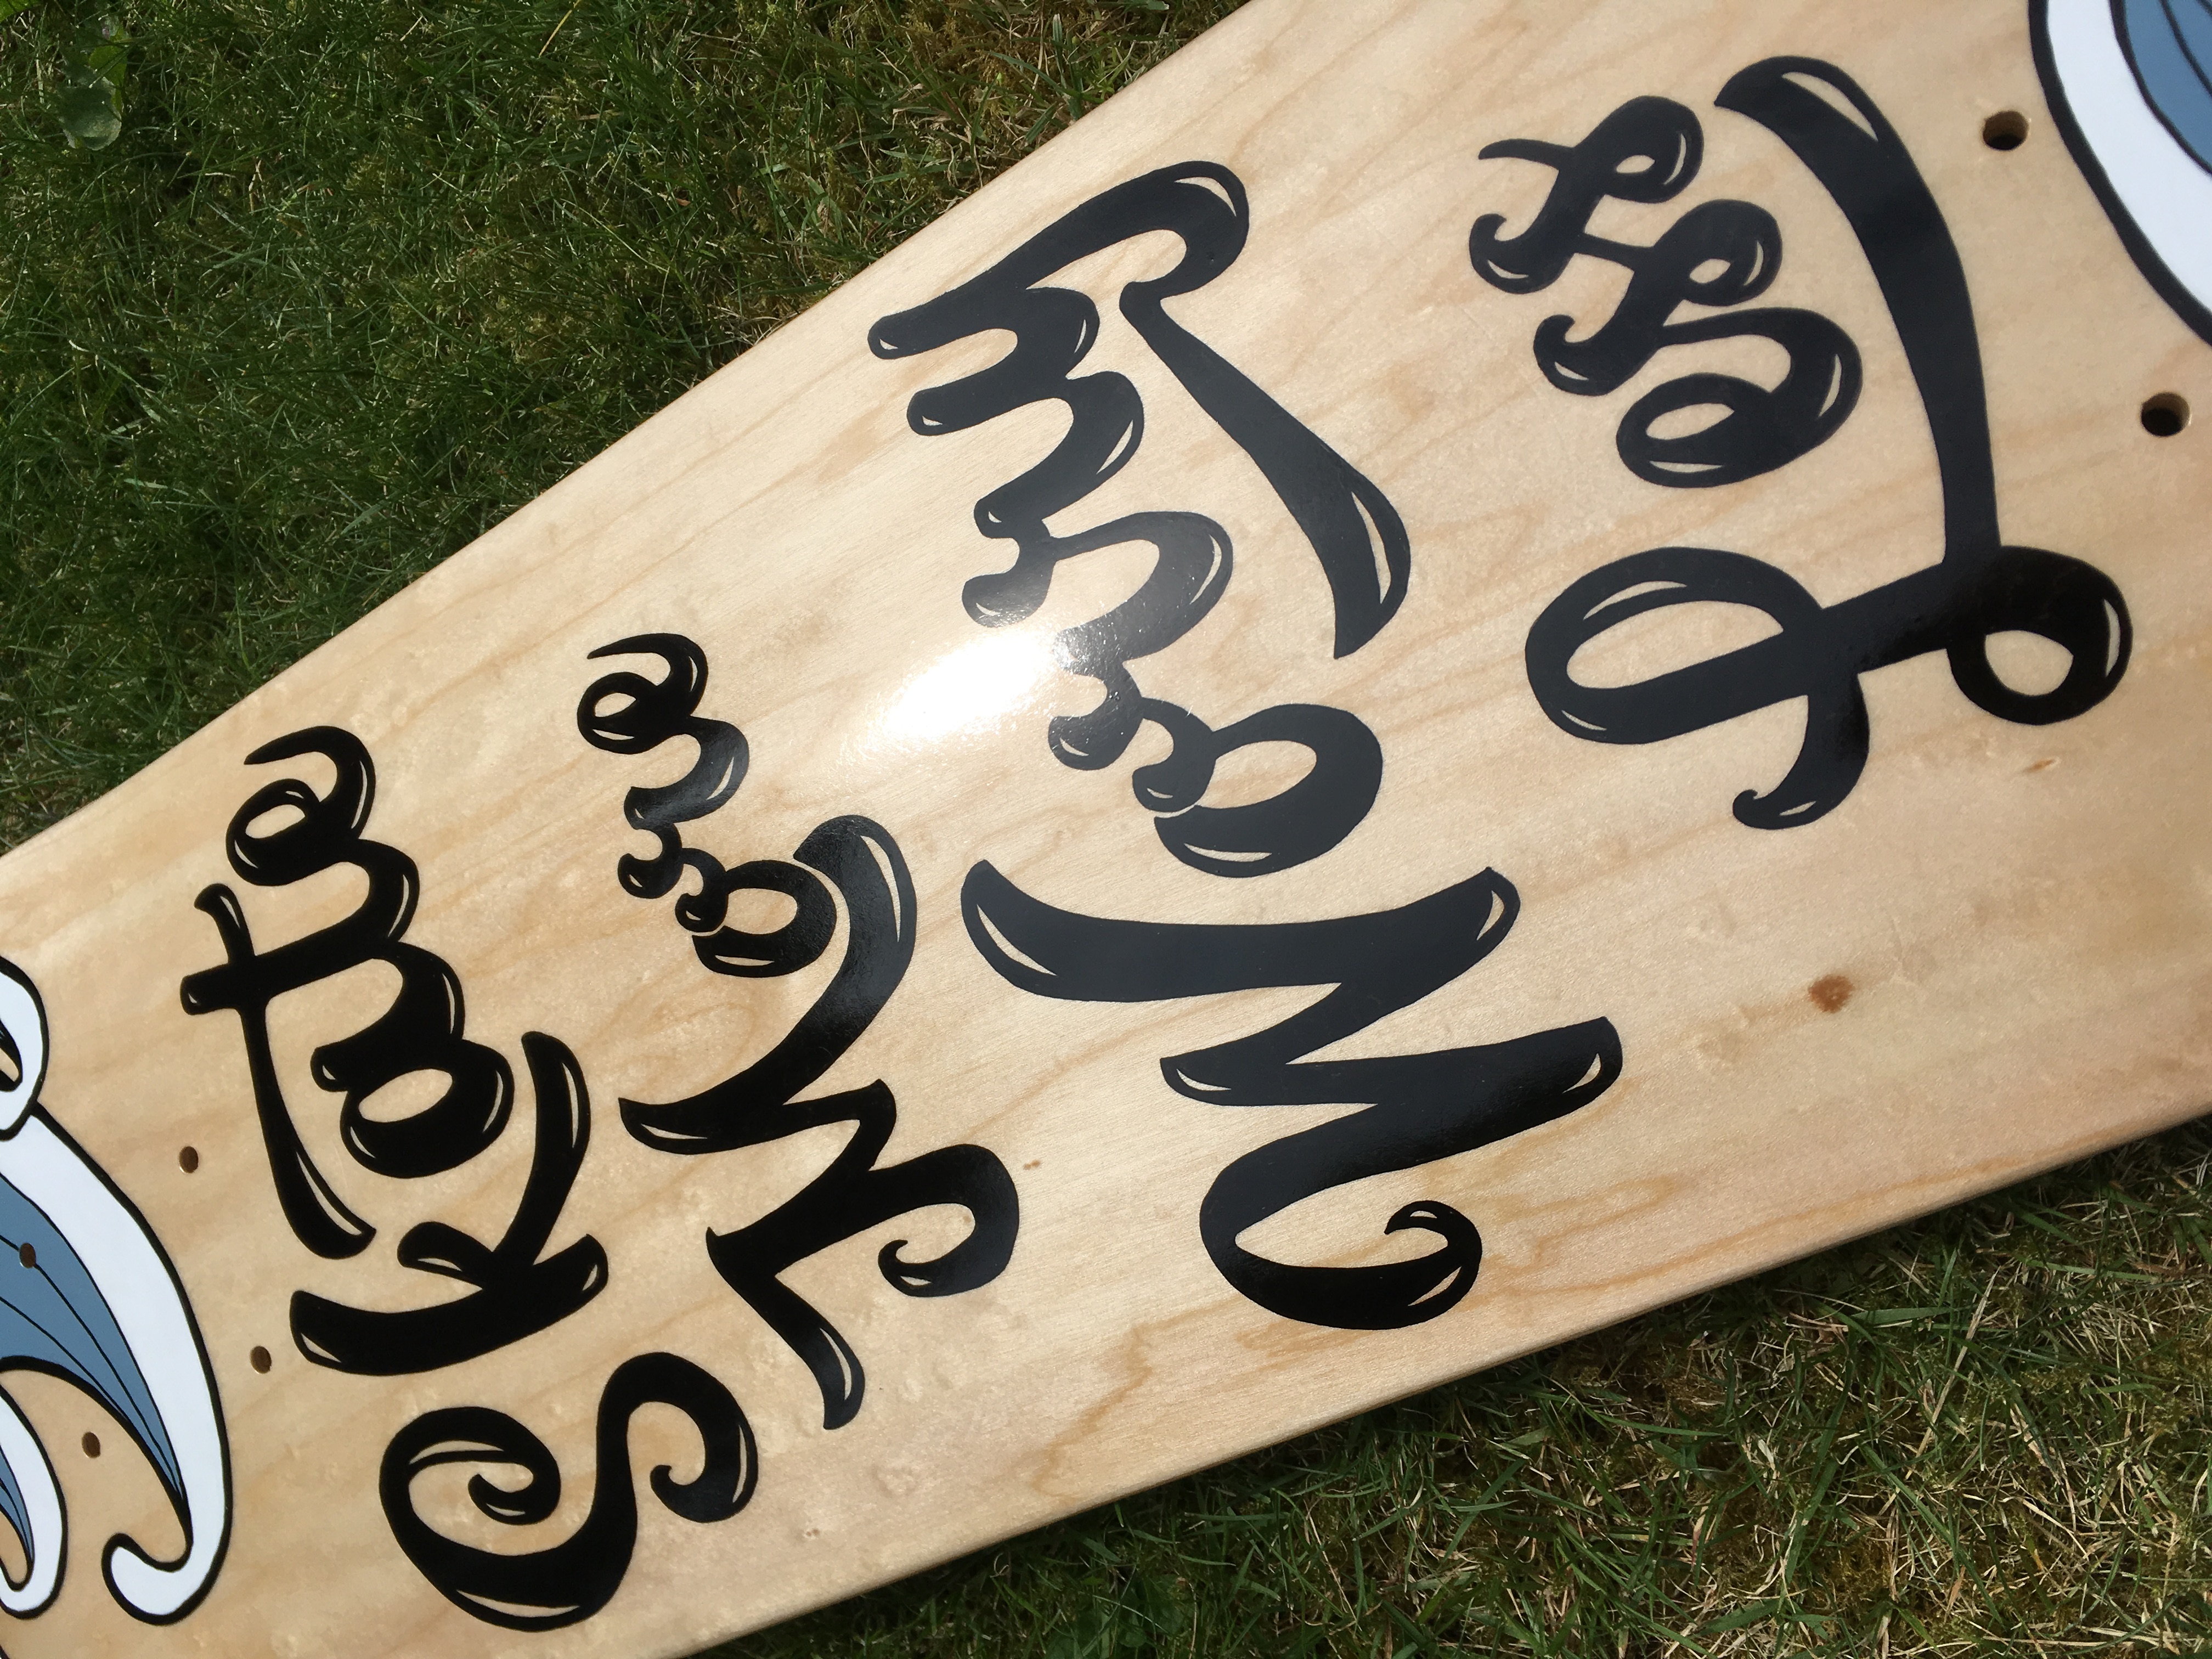 Skate
More
Worry
Less